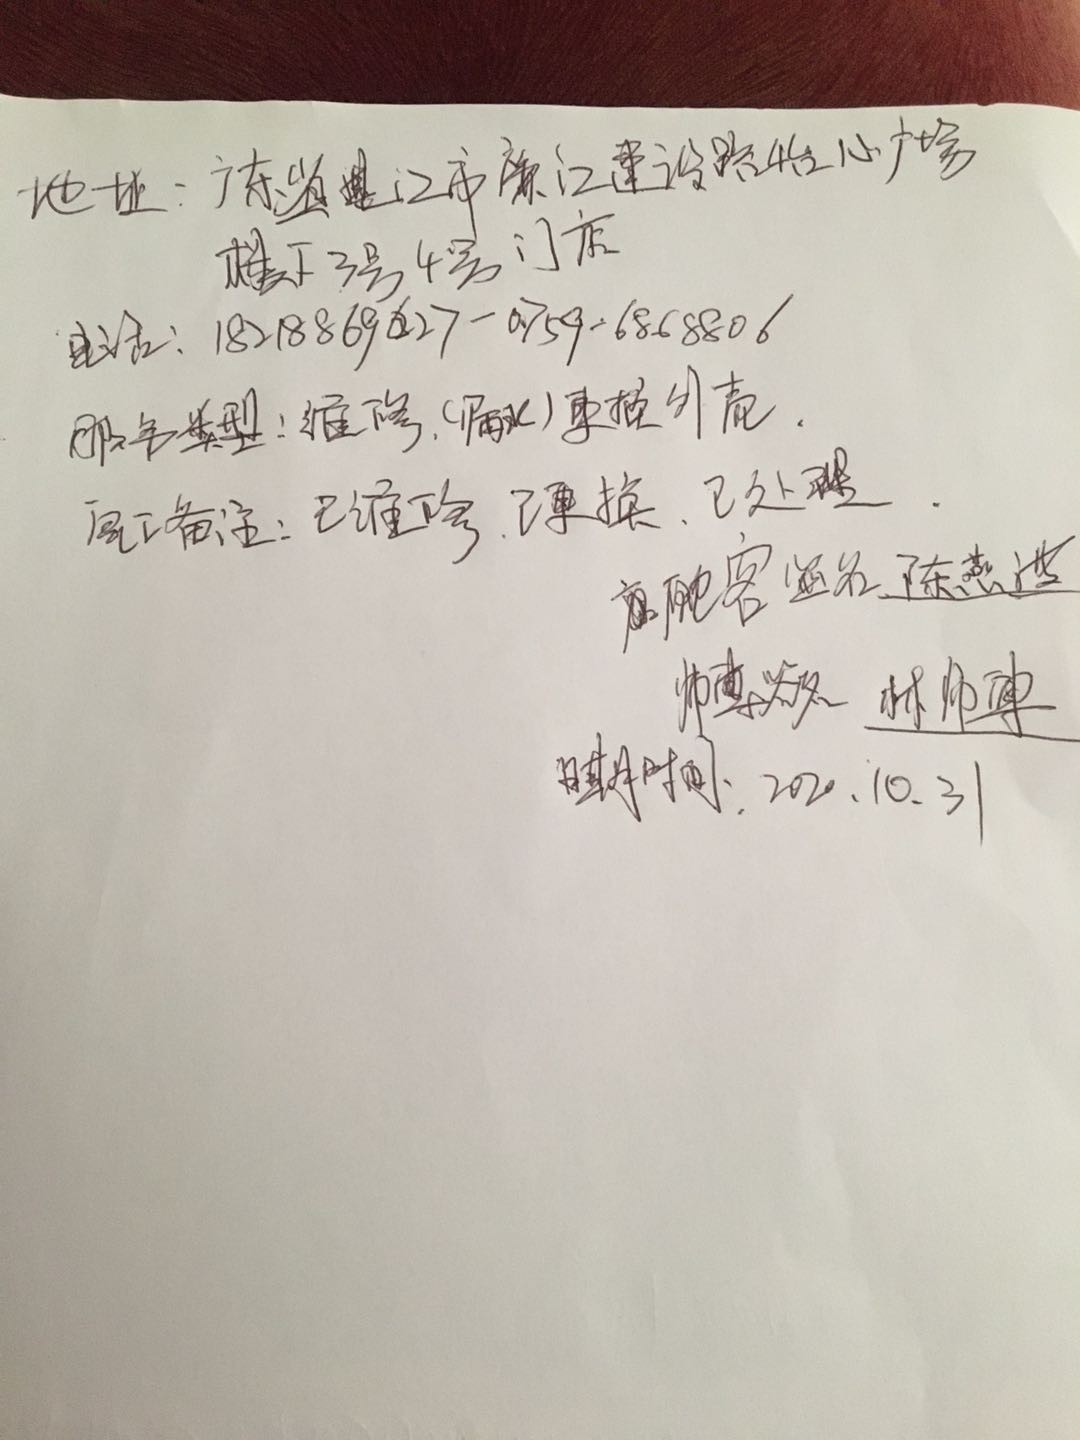 地址：广东省湛江市廉江建设路4怡心广场
楼下3号4号门店
电话：18218869627-0759-6868806
服务类型：维修.(漏水)更换外壳.
完工备注：已维修.已更换、已处理.
顾客签名 陈燕波
师傅签名 林师傅
日期时间.2020.10.31